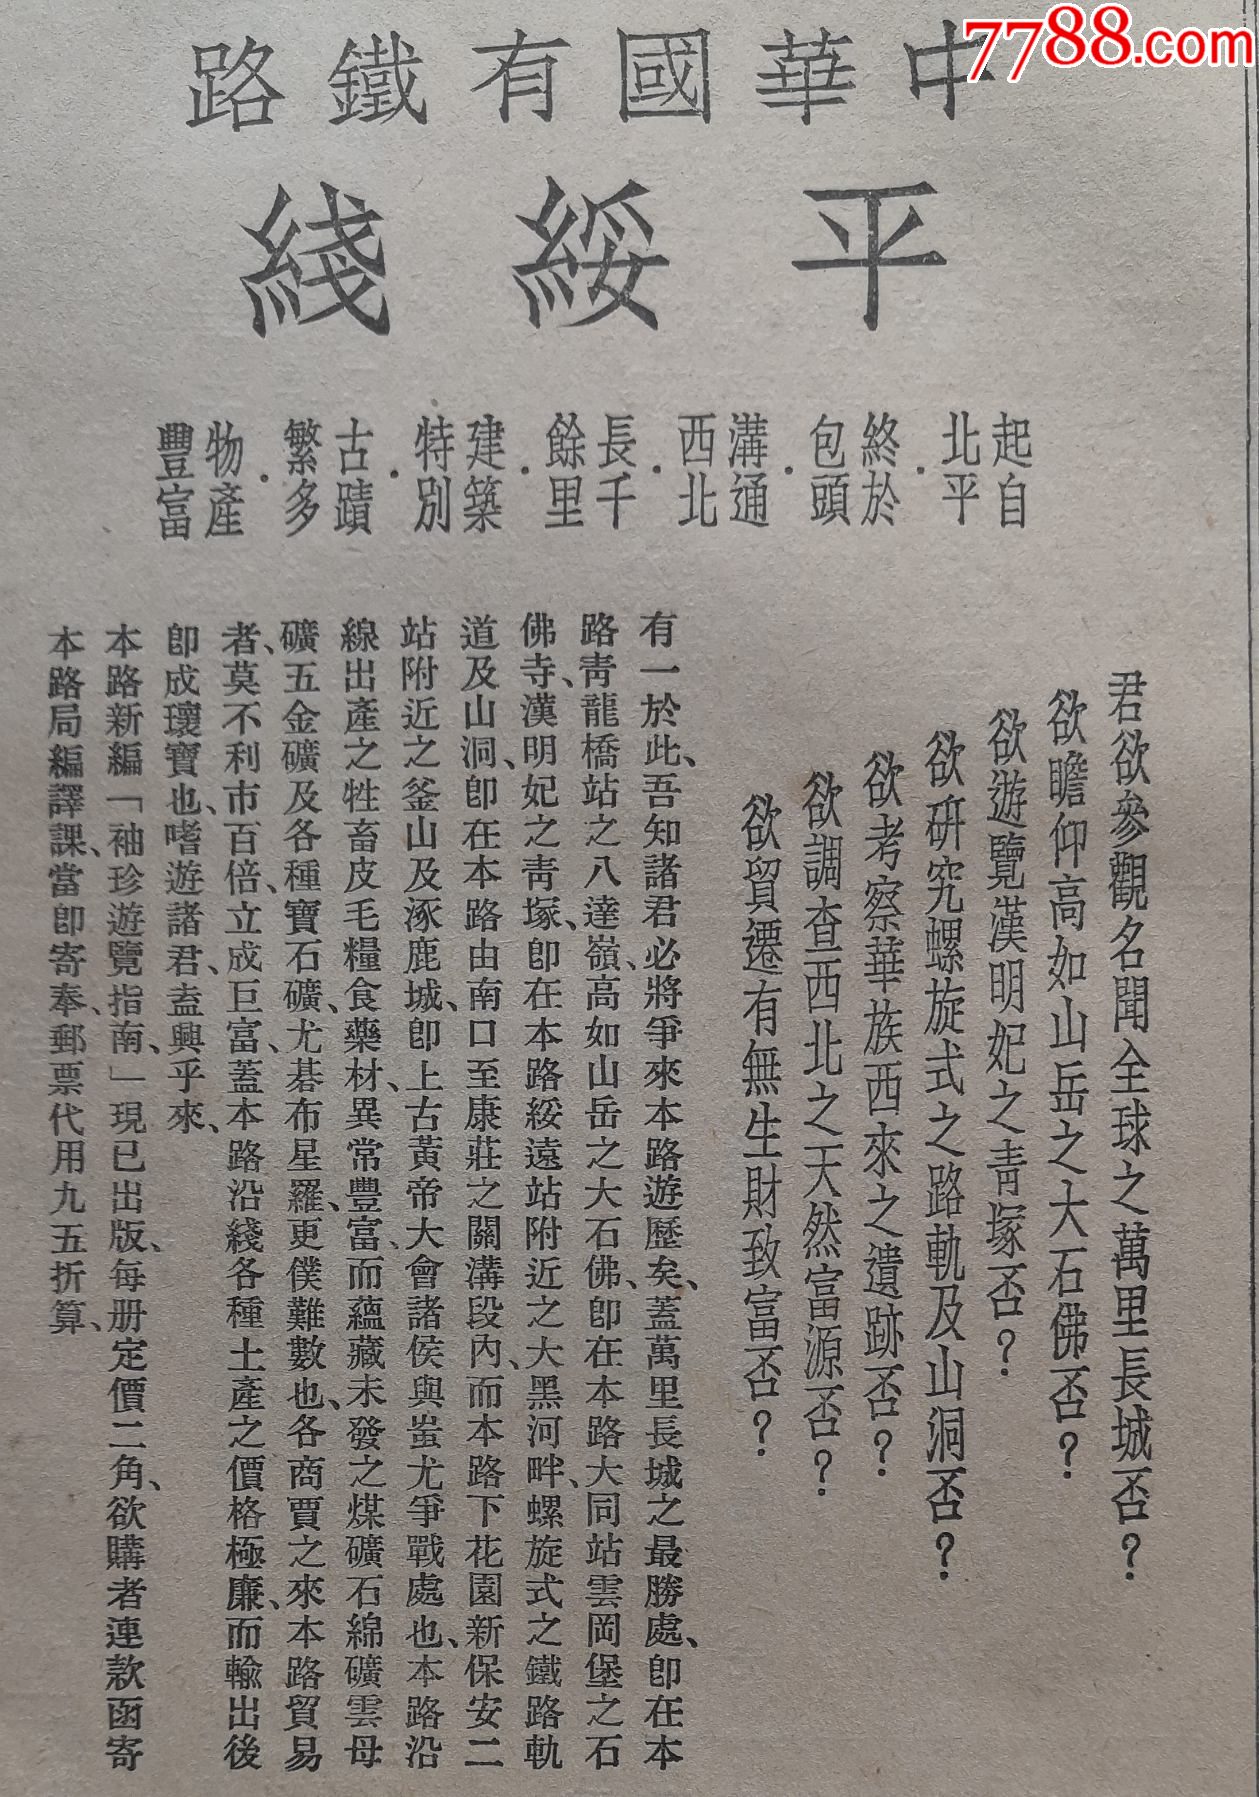 7788.com
中華國有鐵路
平綏綫
起自北平．終於包頭．溝通西北．長千餘里．建築特別．古蹟繁多．物產豐富
君欲參觀名聞全球之萬里長城否？
欲瞻仰高如山岳之大石佛否？
欲遊覽漢明妃之靑塚否？
欲硏究螺旋式之路軌及山洞否？
欲考察華族西來之遺跡否？
欲調查西北之天然富源否？
欲貿遷有無生財致富否？
有一於此、吾知諸君必將爭來本路遊歷矣、蓋萬里長城之最勝處、卽在本
路靑龍橋站之八達嶺、高如山岳之大石佛、卽在本路大同站雲岡堡之石
佛寺、漢明妃之靑塚、卽在本路綏遠站附近之大黑河畔、螺旋式之鐵路軌
道及山洞、卽在本路由南口至康莊之關溝段內、而本路下花園新保安二
站附近之釜山及涿鹿城、卽上古黃帝大會諸侯與蚩尤爭戰處也、本路沿
線出產之牲畜皮毛糧食藥材、異常豐富、而蘊藏未發之煤礦石綿礦雲母
礦五金礦及各種寶石礦、尤碁布星羅、更僕難數也、各商賈之來本路貿易
者、莫不利市百倍、立成巨富、蓋本路沿綫各種土產之價格極廉、而輸出後
卽成瓌寶也、嗜遊諸君、盍興乎來、
本路新編「袖珍遊覽指南」、現已出版、每册定價二角、欲購者連款函寄
本路局編譯課、當卽寄奉、郵票代用九五折算、